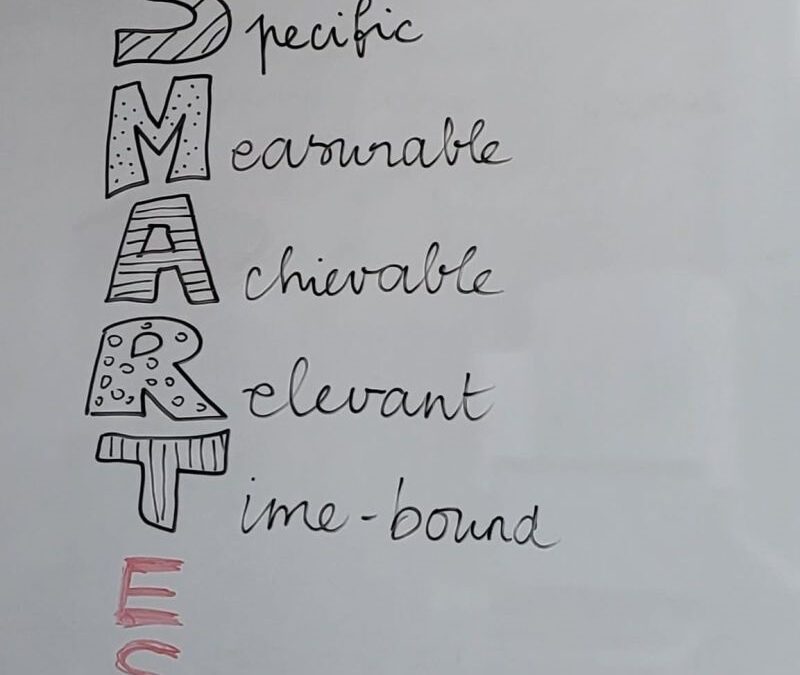 Specific
Measurable
Achievable
Relevant
Time-bound
E